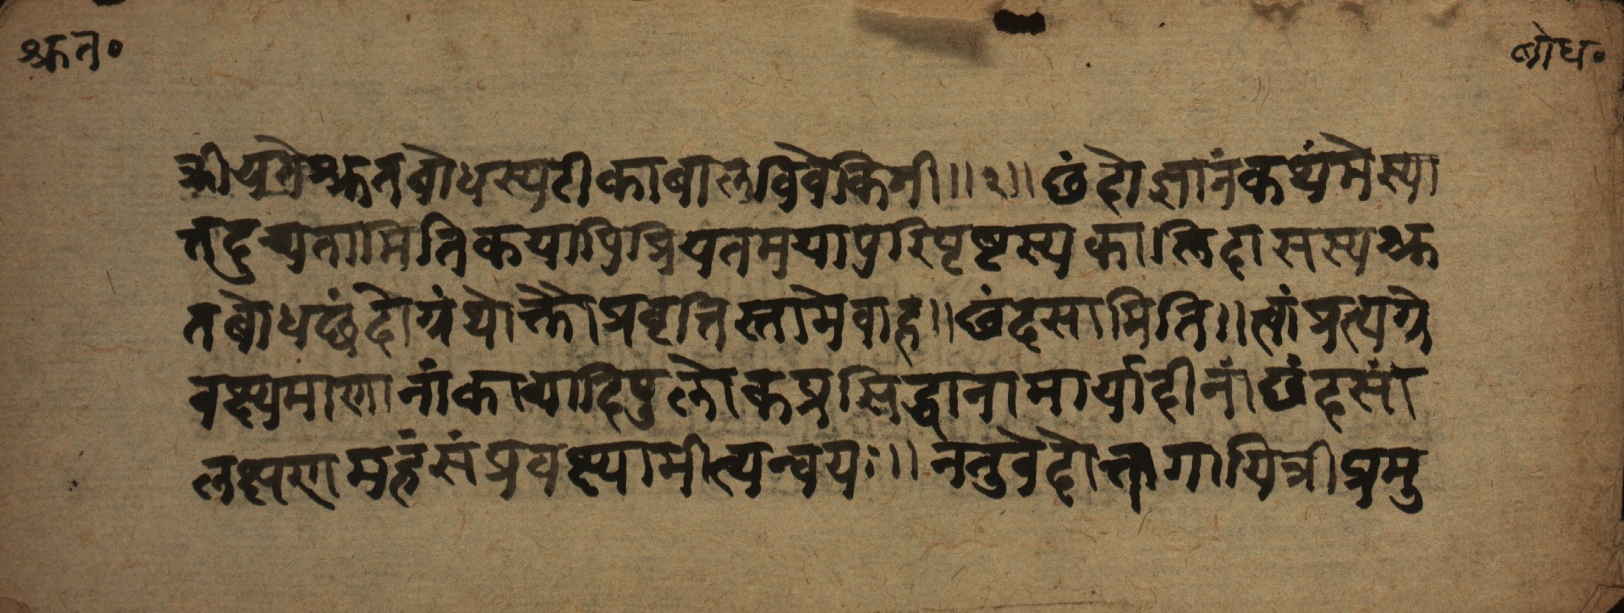 श्रुत॰
बोध॰
क्रीयते श्रुतबोधस्य टीका बालविवेकिनी ॥ २ ॥ छंदोज्ञानं कथं मे स्या
त्तदुच्यतामिति कयापि प्रियतमया परिपृष्टस्य कालिदासस्य श्रु
तबोधछंदोग्रंथोक्तौ प्रवृत्तिस्तामेवाह ॥ छंदसामिति ॥ त्वां प्रत्यग्रे
वक्ष्यमाणानां काव्यादिषु लोकप्रसिद्धानामार्यादीनां छंदसां
लक्षणमहं संप्रवक्ष्यामीत्यन्वयः ॥ नतु वेदोक्तगायित्रीप्रमु